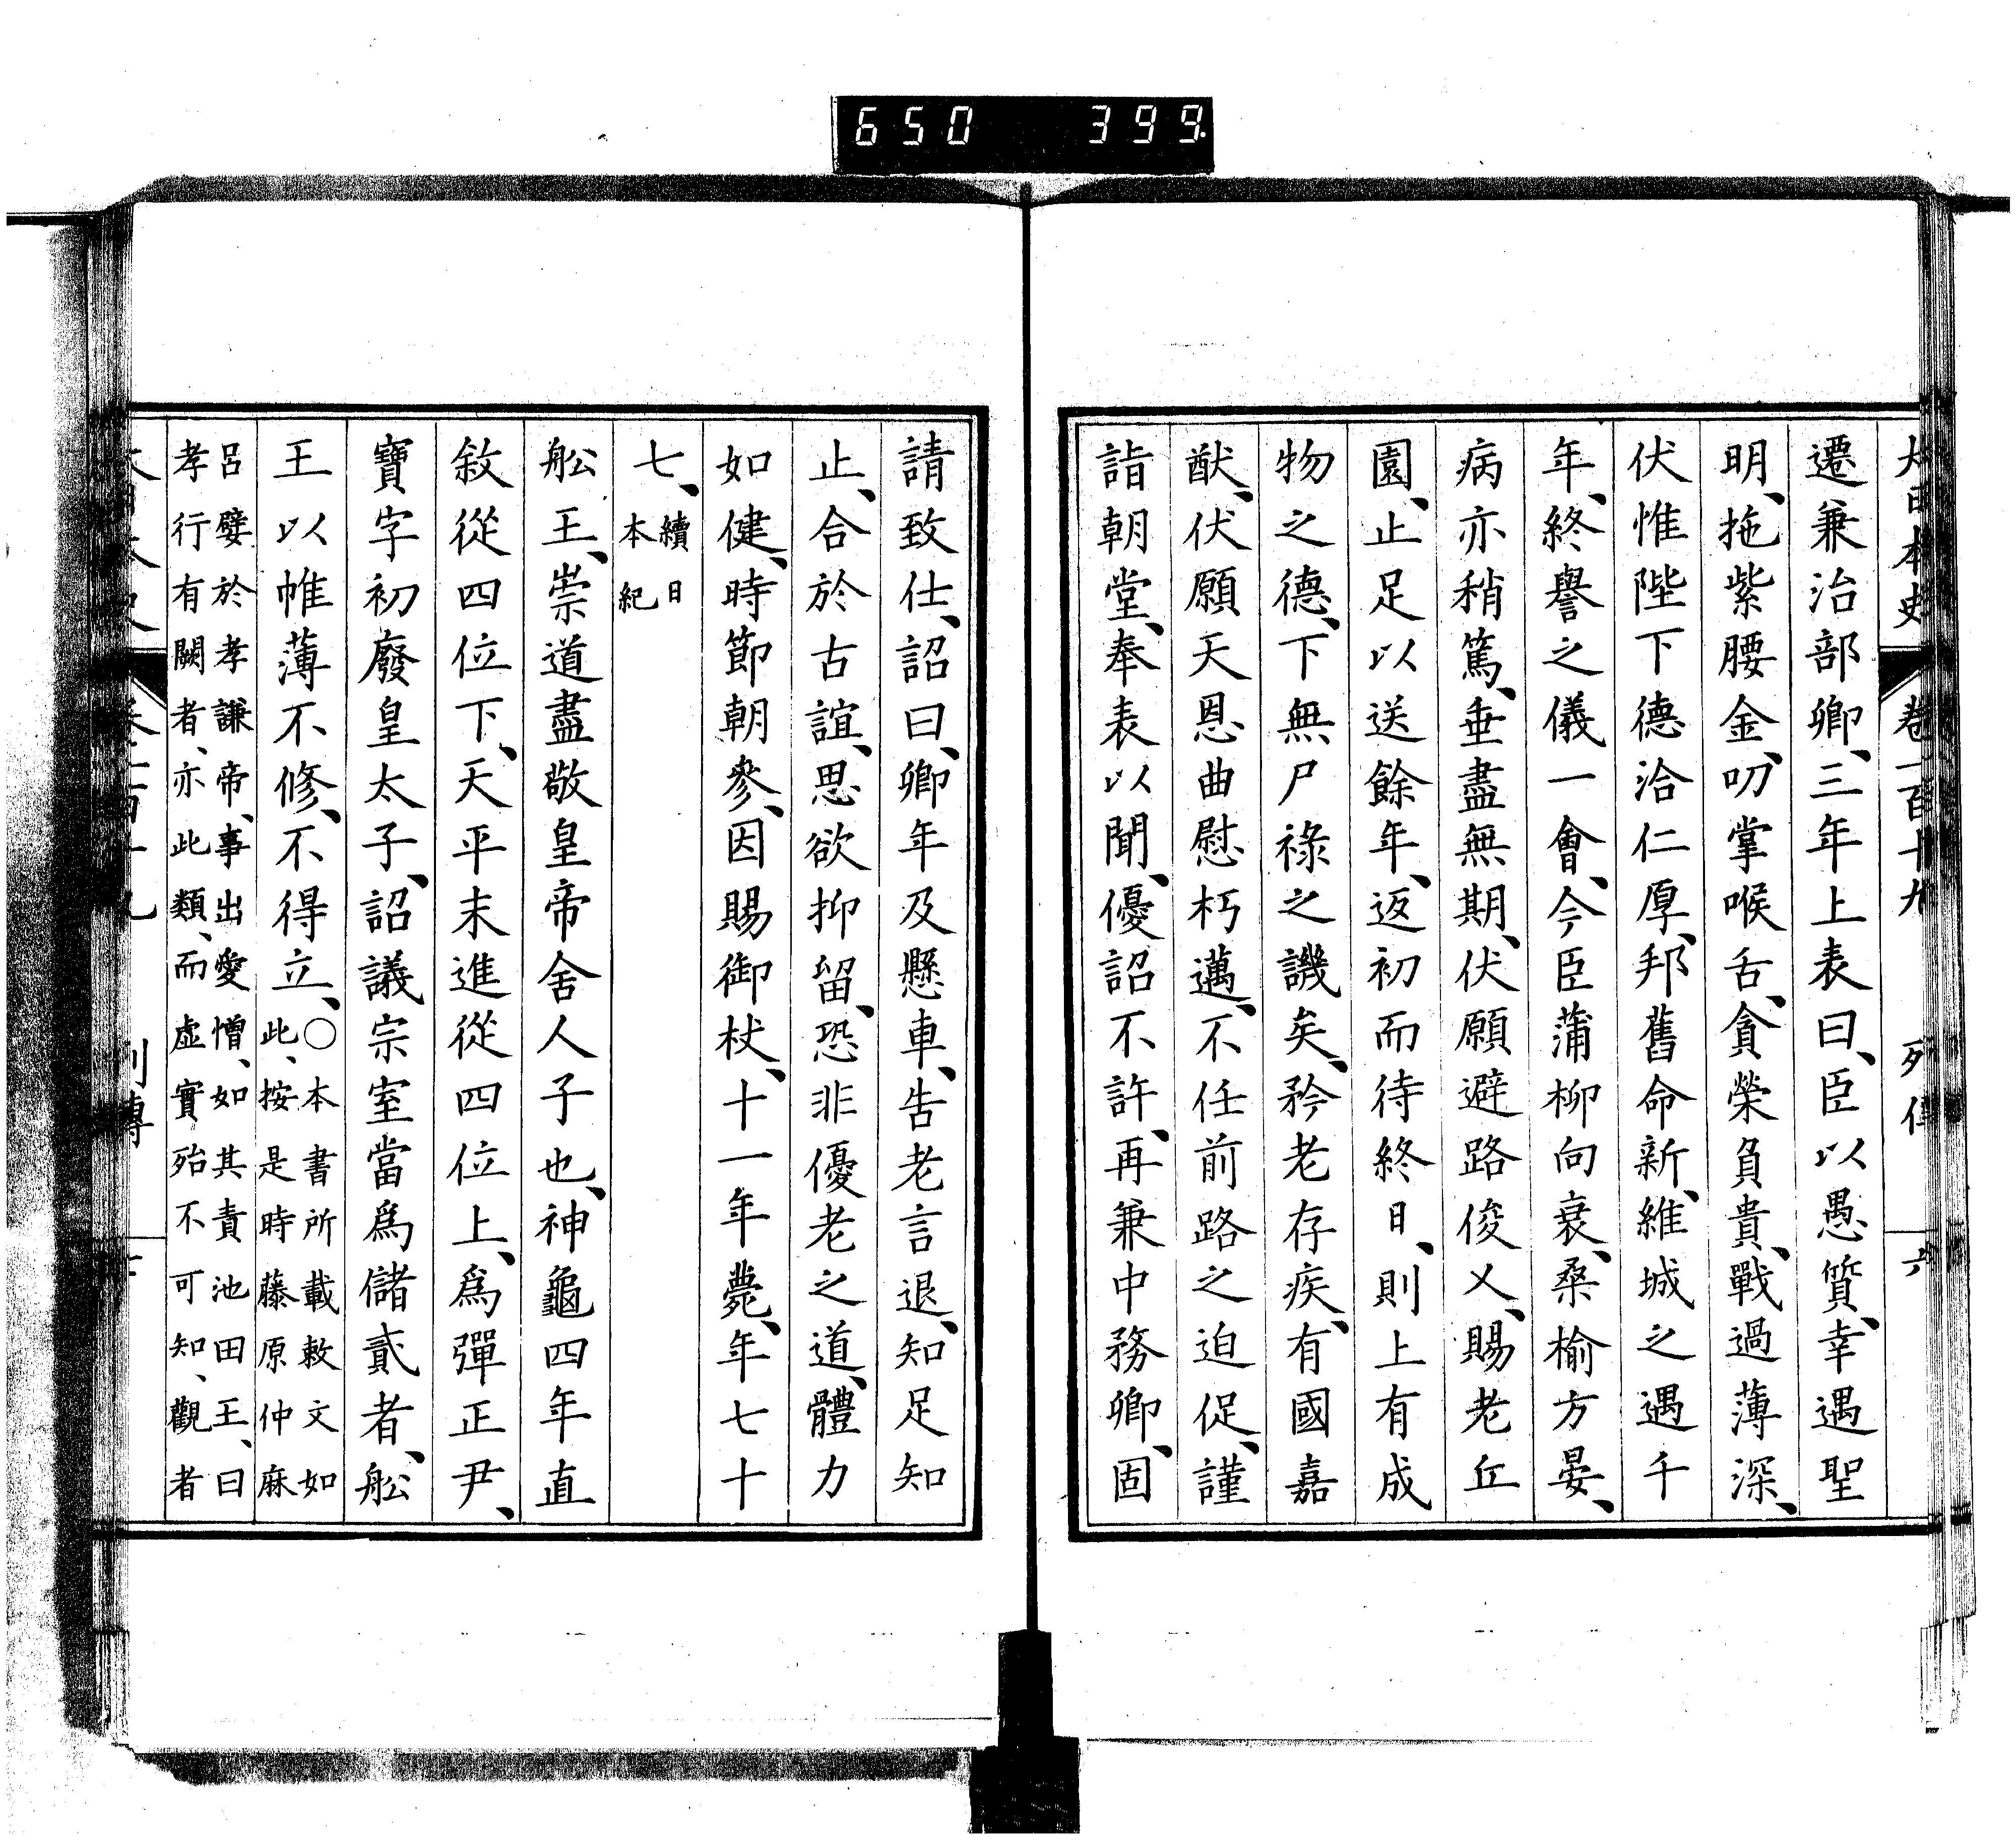 650 399
大日本史 卷一百十九 列傳 六
遷兼治部卿、三年上表曰、臣以愚質、幸遇聖
明、拖紫腰金、叨掌喉舌、貪榮負貴、戰過薄深、
伏惟陛下德洽仁厚、邦舊命新、維城之遇千
年、終譽之儀一會、今臣蒲柳向衰、桑榆方晏、
病亦稍篤、垂盡無期、伏願避路俊乂、賜老丘
園、止足以送餘年、返初而待終日、則上有成
物之德、下無尸祿之譏矣、矜老存疾、有國嘉
猷、伏願天恩曲慰朽邁、不任前路之迫促、謹
詣朝堂、奉表以聞、優詔不許、再兼中務卿、固
請致仕、詔曰、卿年及懸車、告老言退、知足知
止、合於古誼、思欲抑留、恐非優老之道、體力
如健、時節朝參、因賜御杖、十一年薨、年七十
七、續日本紀
舩王、崇道盡敬皇帝舍人子也、神龜四年直
敘從四位下、天平末進從四位上、爲彈正尹、
寶字初廢皇太子、詔議宗室當爲儲貳者、舩
王以帷薄不修、不得立、○本書所載敕文如
此、按是時藤原仲麻
呂嬖於孝謙帝、事出愛憎、如其責池田王、曰
孝行有闕者、亦此類、而虛實殆不可知、觀者